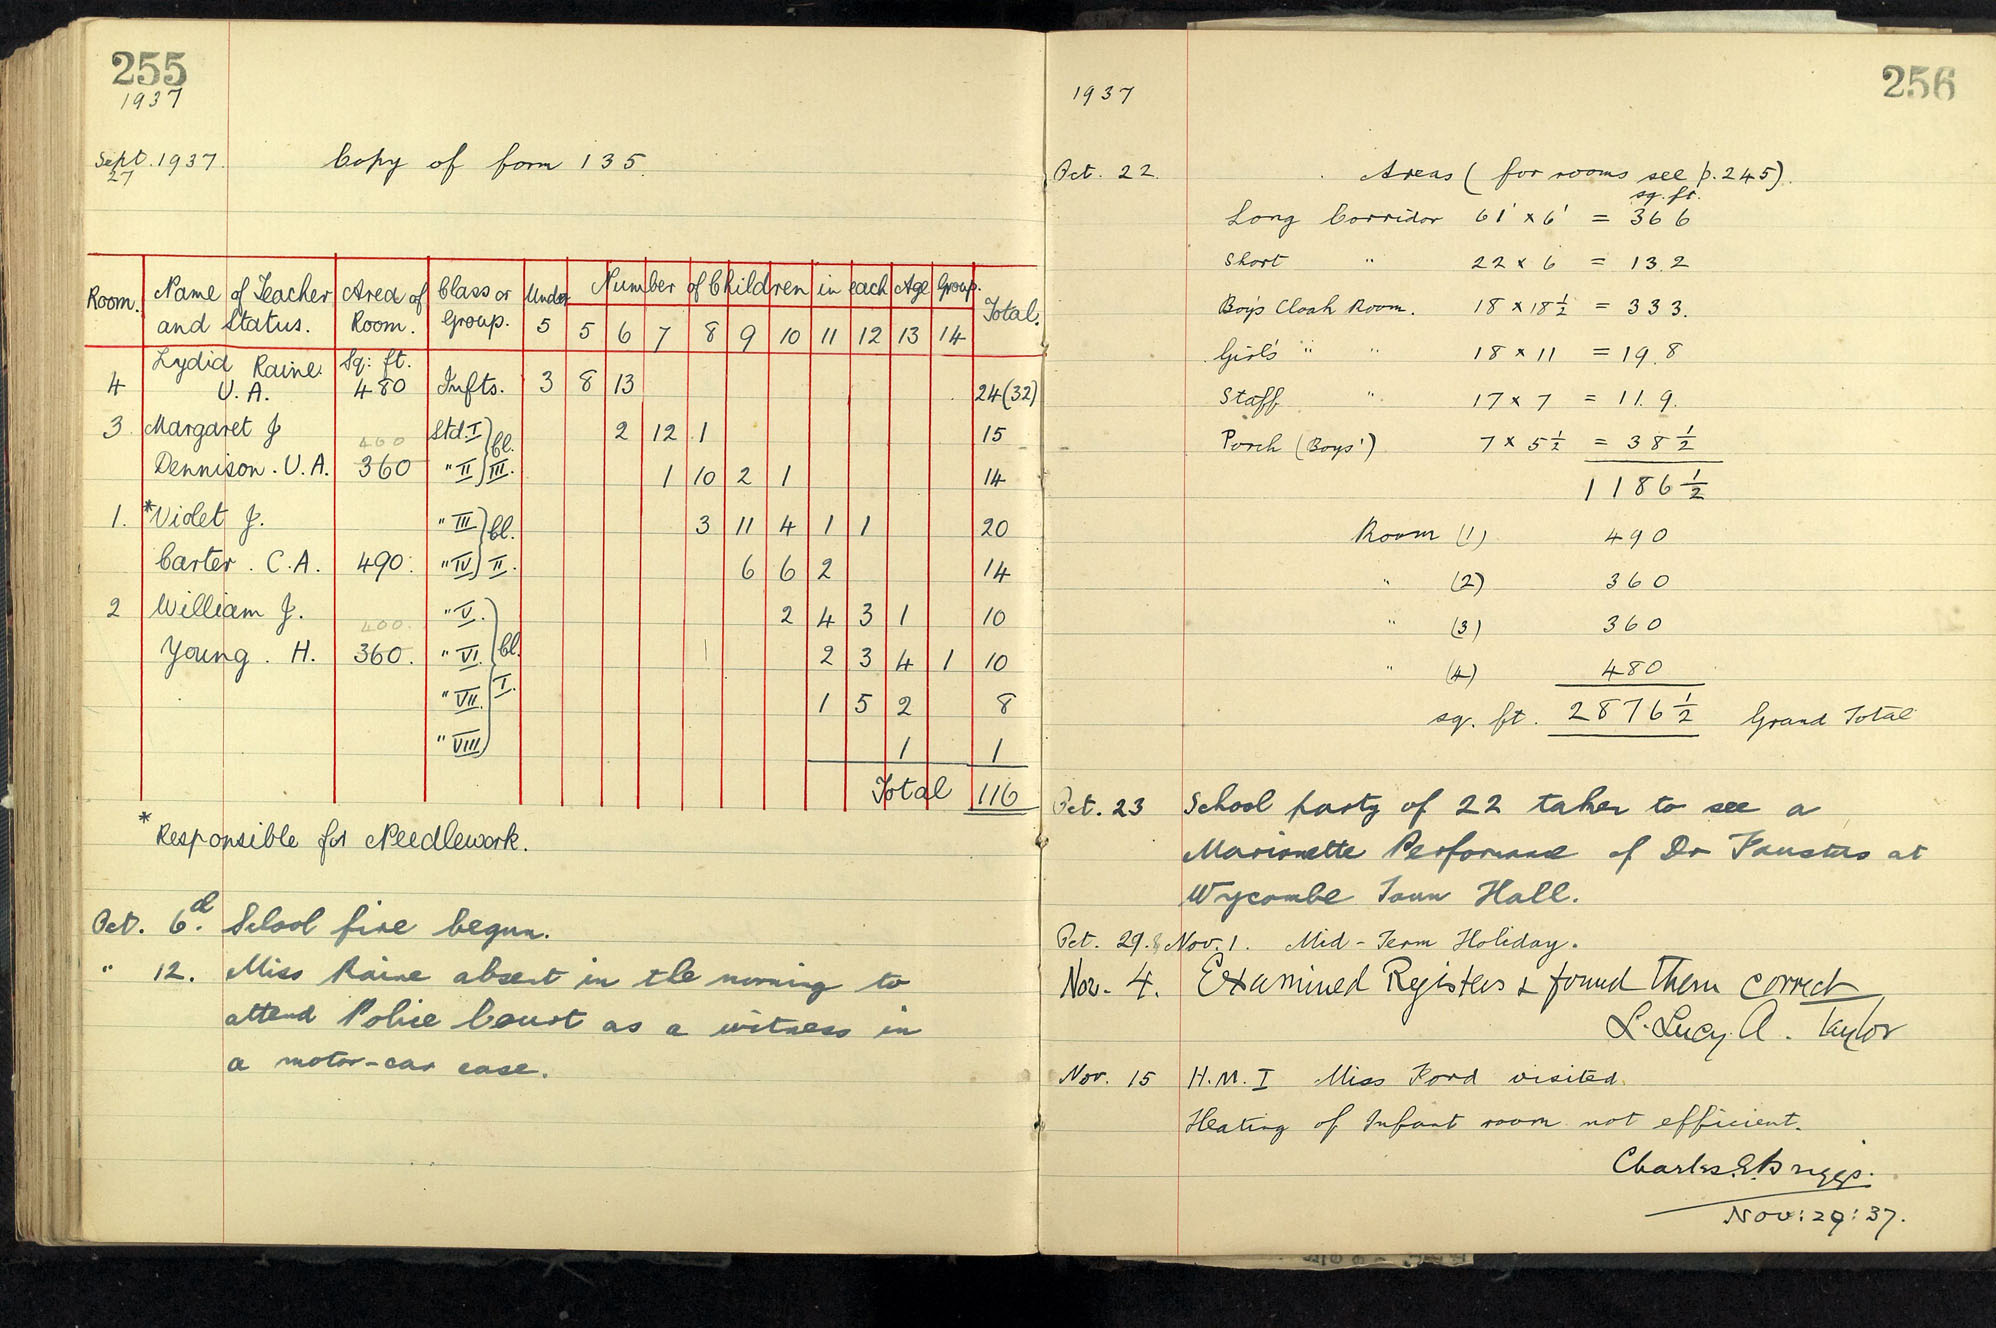 255
1937
Sept. 1937. Copy of form 135.
27
Room. Name of Teacher Area of Class or Under Number of Children in each Age Group. Total.
and Status. Room. Group. 5 5 6 7 8 9 10 11 12 13 14
Lydia Raine Sq: ft.
4 U.A. 480 Infts. 3 8 13 24(32)
3 Margaret J 460 Std. I } Cl. 2 12 1 15
Dennison. U.A. 360 " II } III. 1 10 2 1 14
1. *Violet J. " III } Cl. 3 11 4 1 1 20
Carter. C.A. 490. " IV } II. 6 6 2 14
2 William J. 400. " V. 2 4 3 1 10
Young. H. 360. " VI. } Cl. 2 3 4 1 10
" VII. } I. 1 5 2 8
" VIII 1 1
Total 116
* Responsible for Needlework.
Oct. 6th. School fire begun.
" 12. Miss Raine absent in the morning to
attend Police Court as a witness in
a motor-car case.
256
1937
Oct. 22. Areas (for rooms see p. 245).
sq. ft.
Long Corridor 61' x 6' = 366
Short " 22 x 6 = 132
Boy's Cloak Room. 18 x 18 1/2 = 333.
Girl's " " 18 x 11 = 198
Staff " 17 x 7 = 119.
Porch (Boys') 7 x 5 1/2 = 38 1/2
1186 1/2
Room (1) 490
" (2) 360
" (3) 360
" (4) 480
sq. ft. 2876 1/2 Grand Total
Oct. 23 School party of 22 taken to see a
Marionette Performance of Dr Faustus at
Wycombe Town Hall.
Oct. 29. & Nov. 1. Mid-Term Holiday.
Nov. 4. Examined Registers & found them correct
L. Lucy. A. Taylor
Nov. 15 H.M.I Miss Ford visited.
Heating of Infant room not efficient.
Charles. E. Briggs.
Nov: 29: 37.